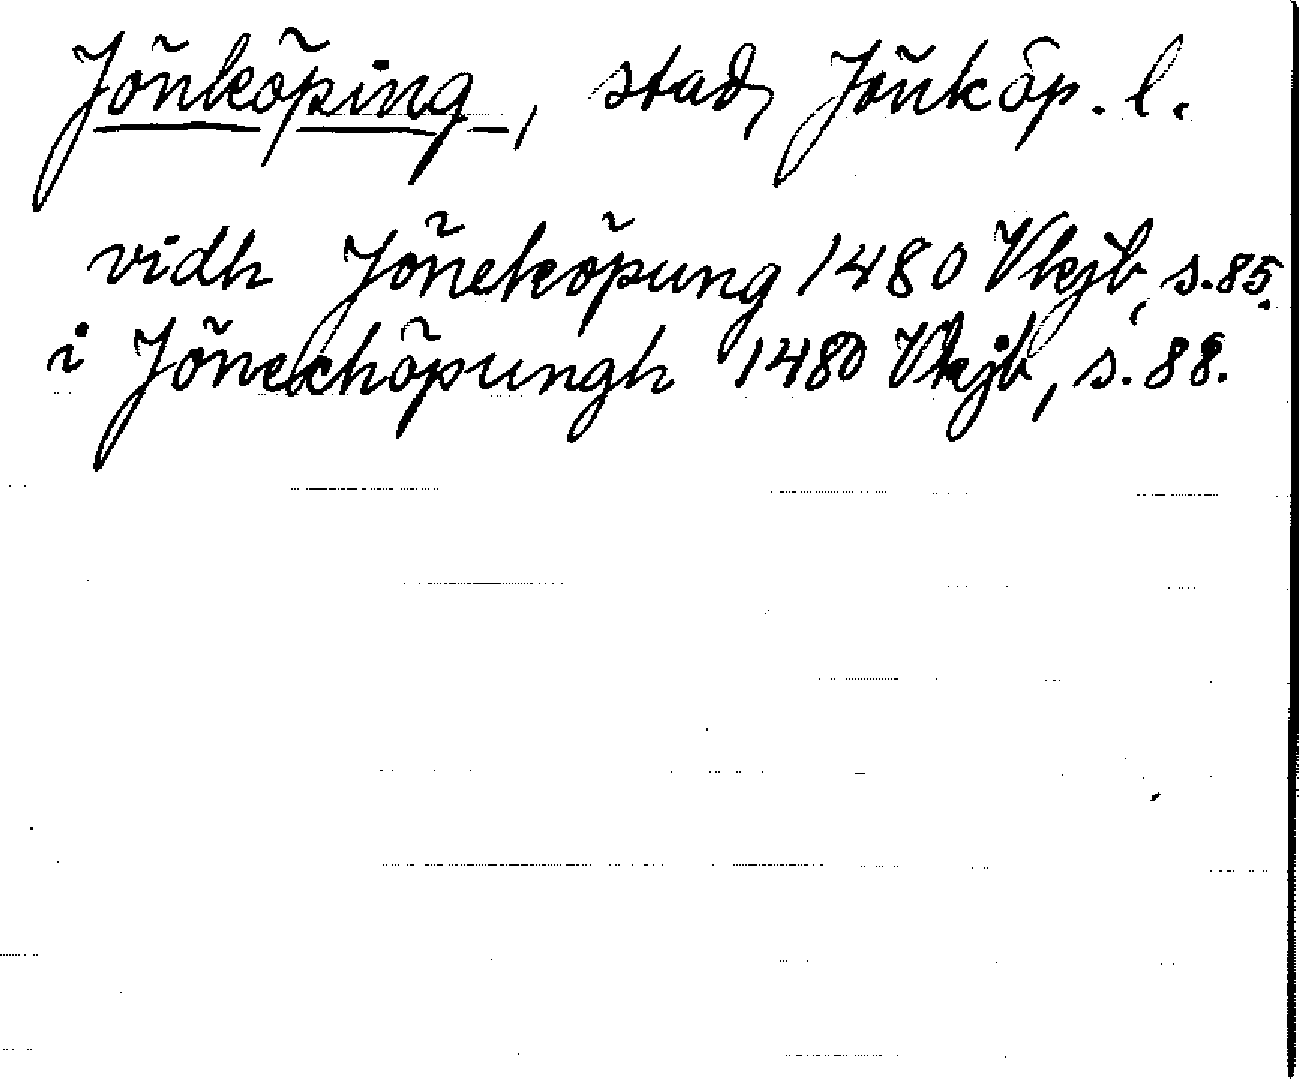 Jönköping, stad, Jönköp. l.
vidh Jöneköpung 1480 Vkjb, s. 85.
i Jönechöpungh 1480 Vkjb, s. 88.